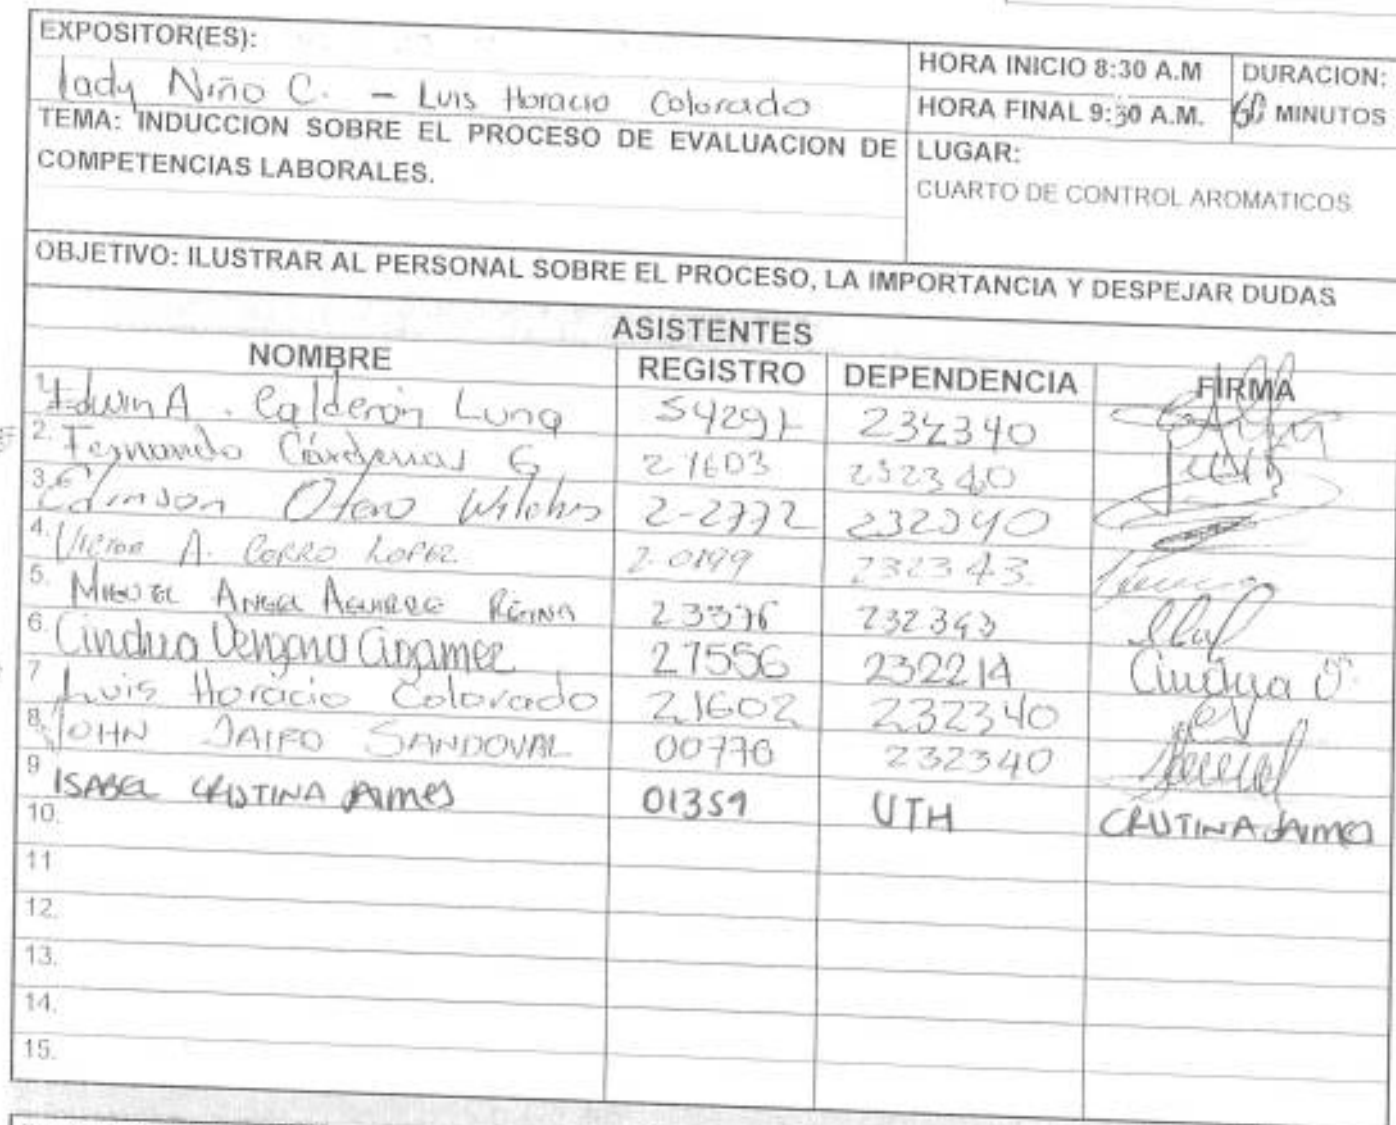 EXPOSITOR(ES):
HORA INICIO 8:30 A.M
DURACION:
lady Niño C. - Luis Horacio Colorado
HORA FINAL 9:30 A.M.
60 MINUTOS
TEMA: INDUCCION SOBRE EL PROCESO DE EVALUACION DE
COMPETENCIAS LABORALES.
LUGAR:
CUARTO DE CONTROL AROMATICOS
OBJETIVO: ILUSTRAR AL PERSONAL SOBRE EL PROCESO, LA IMPORTANCIA Y DESPEJAR DUDAS
ASISTENTES
NOMBRE REGISTRO DEPENDENCIA FIRMA
1. Edwin A. Calderón Luna 232340
2. Fernando Cárdenas G 21603 232340
3. Edinson Otero Wilches 2-2772 232340
4. Victor A. Corro Lopez 2-0199 232343
5. MIGUEL ANGEL AGUIRRE REINA 232343
6. Cindya Vergara 27556 232214 Cindya V.
7 Luis Horacio Colorado 21602 232340
8. JOHN JAIRO SANDOVAL 232340
9 ISABEL CRISTINA JAIMES 01359 UTH CRISTINA JAIMES
10.
11
12.
13.
14.
15.